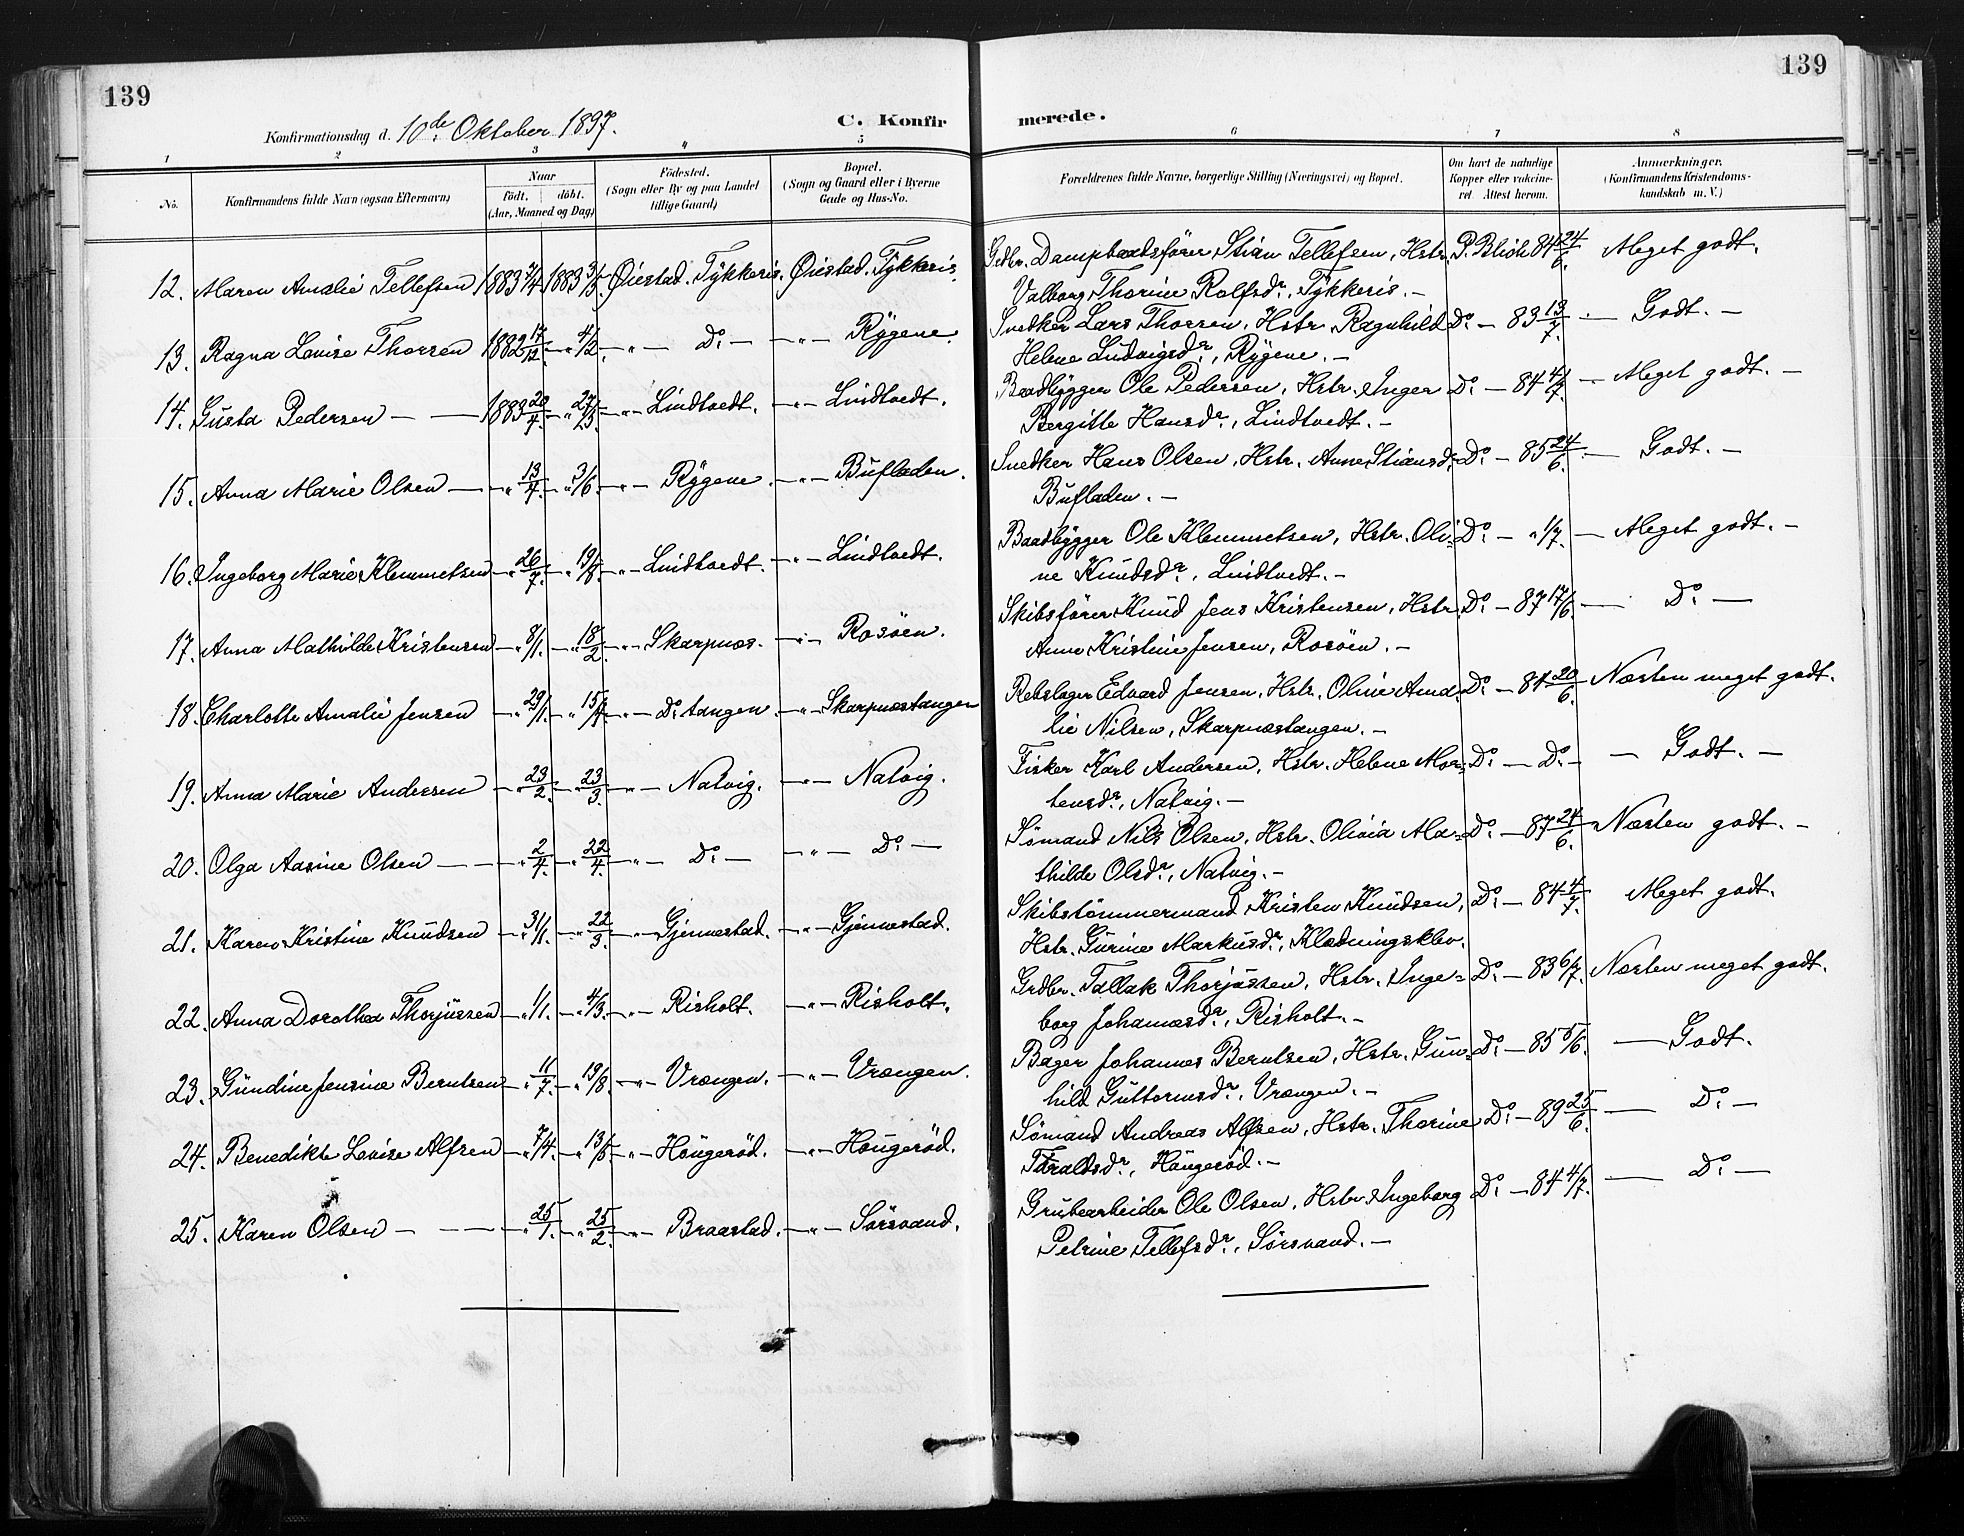 139
139
Konfirmationsdag d. 10de Oktober 1897.
C. Konfirmerede.
1 2 3 4 5 6 7 8
No.
Konfirmandens fulde Navn (ogsaa Efternavn)
Naar
født. døbt.
(Aar, Maaned og Dag)
Fødested.
(Sogn eller By og paa Landet tillige Gaard)
Bopæl.
(Sogn og Gaard eller i Byerne Gade og Hus-No.
Forældrenes fulde Navne, borgerlige Stilling (Næringsvei) og Bopæl.
Om havt de naturlige Kopper eller vaccineret. Attest herom.
Anmærkninger.
(Konfirmandens Kristendomskundskab m. V.)
12. Maren Amalie Tellefsen 1883 1883 Øiestad. Tykkeris. Øiestad. Tykkeris. Grdbr. Dampbaadsfører Stian Tellefsen, Hstr. P. Blich 84 24/6. Meget godt.
Valborg Thorine Rolfsdr., Tykkeris. —
13. Ragna Lovise Thorsen 1882 17/12 — " 4/2 — " — Do. — — " — Rygene. Snedker Lars Thorsen, Hstr. Ragnhild Do. — 83 13/7. — Godt. —
Helene Ludvigsdr., Rygene. —
14. Gusta Pedersen — — 1883 20/4. — " — " — Lindtvedt. — " — Lindtvedt. Baadbygger Ole Pedersen, Hstr. Inger Do. — 84 4/7 — Meget godt. —
Bergitte Hansdr., Lindtvedt. —
15. Anna Marie Olsen — — " 13/4. — " 3/6. — " — Rygene. — " — Bufladen. Snedker Hans Olsen, Hstr. Anne Stiansdr. Do. — 85 24/6. — Godt. —
Bufladen. —
16. Ingeborg Marie Klemmetsen — " 26/7. — " 19/8. — " — Lindtvedt. — " — Lindtvedt. Baadbygger Ole Klemmetsen, Hstr. Oli= Do. — " 1/7. — Meget godt. —
ne Knudsdr., Lindtvedt. —
17. Anna Mathilde Kristensen — " 8/1. — " 18/2. — " — Skarpnæs. — " — Rosøen. Skibsfører Knud Jens Kristensen, Hstr. Do. — 87 17/6. — Do. —
Anne Kristine Jensen, Rosøen. —
18. Charlotte Amalie Jensen — " 29/1. — " 15/4. — " — Do. tangen. — " — Skarpnæstangen Rebslager Edvard Jensen, Hstr. Oline Ama= Do. — 84 20/6. Næsten meget godt.
lie Nilsen, Skarpnæstangen. —
19. Anna Marie Andersen — " 23/2. — " 23/3. — " — Natvig. — " — Natvig. Fisker Karl Andersen, Hstr. Helene Mor= Do. — Do. — — Godt. —
tensdr., Natvig. —
20. Olga Aasine Olsen — — " 2/4. — " 22/4. — " — Do. — — " — Do. — Sømand Nils Olsen, Hstr. Olivia Ma= Do. — 87 24/6. Næsten godt. —
thilde Olsdr., Natvig. —
21. Karen Kristine Knudsen — " 31/1. — " 22/3. — " — Gjennestad. — " — Gjennestad. Skibstømmermand Kristen Knudsen, Do. — 84 4/7. Meget godt.
Hstr. Gurine Markusdr., Klædningsklev.
22. Anna Dorothea Thorjussen — " 1/1. — " 4/3. — " — Risholt. — " — Risholt. Grdbr. Tallak Thorjussen, Hstr. Inge= Do. — 83 6/7. Næsten meget godt.
borg Johannesdr., Risholt. —
23. Gundine Jensine Berntsen — " 11/7. — " 19/8. — " — Vrængen. — " — Vrængen. Bager Johannes Berntsen, Hstr. Gun= Do. — 85 — Godt.
hild Guttormsdr., Vrængen. —
24. Benedikte Lovise Alfsen — " 7/4. — " — " — Haugerød. — " — Haugerød. Sømand Andreas Alfsen, Hstr. Thorine Do. — 89 25/6. — Do. —
Taraldsdr., Haugerød. —
25. Karen Olsen — — — " 25/1. — " 25/2. — " — Braastad. — " — Sørsvand. Grubearbeider Ole Olsen, Hstr. Ingeborg Do. — 84 4/7. — Do. —
Petrine Tellefsdr., Sørsvand. —